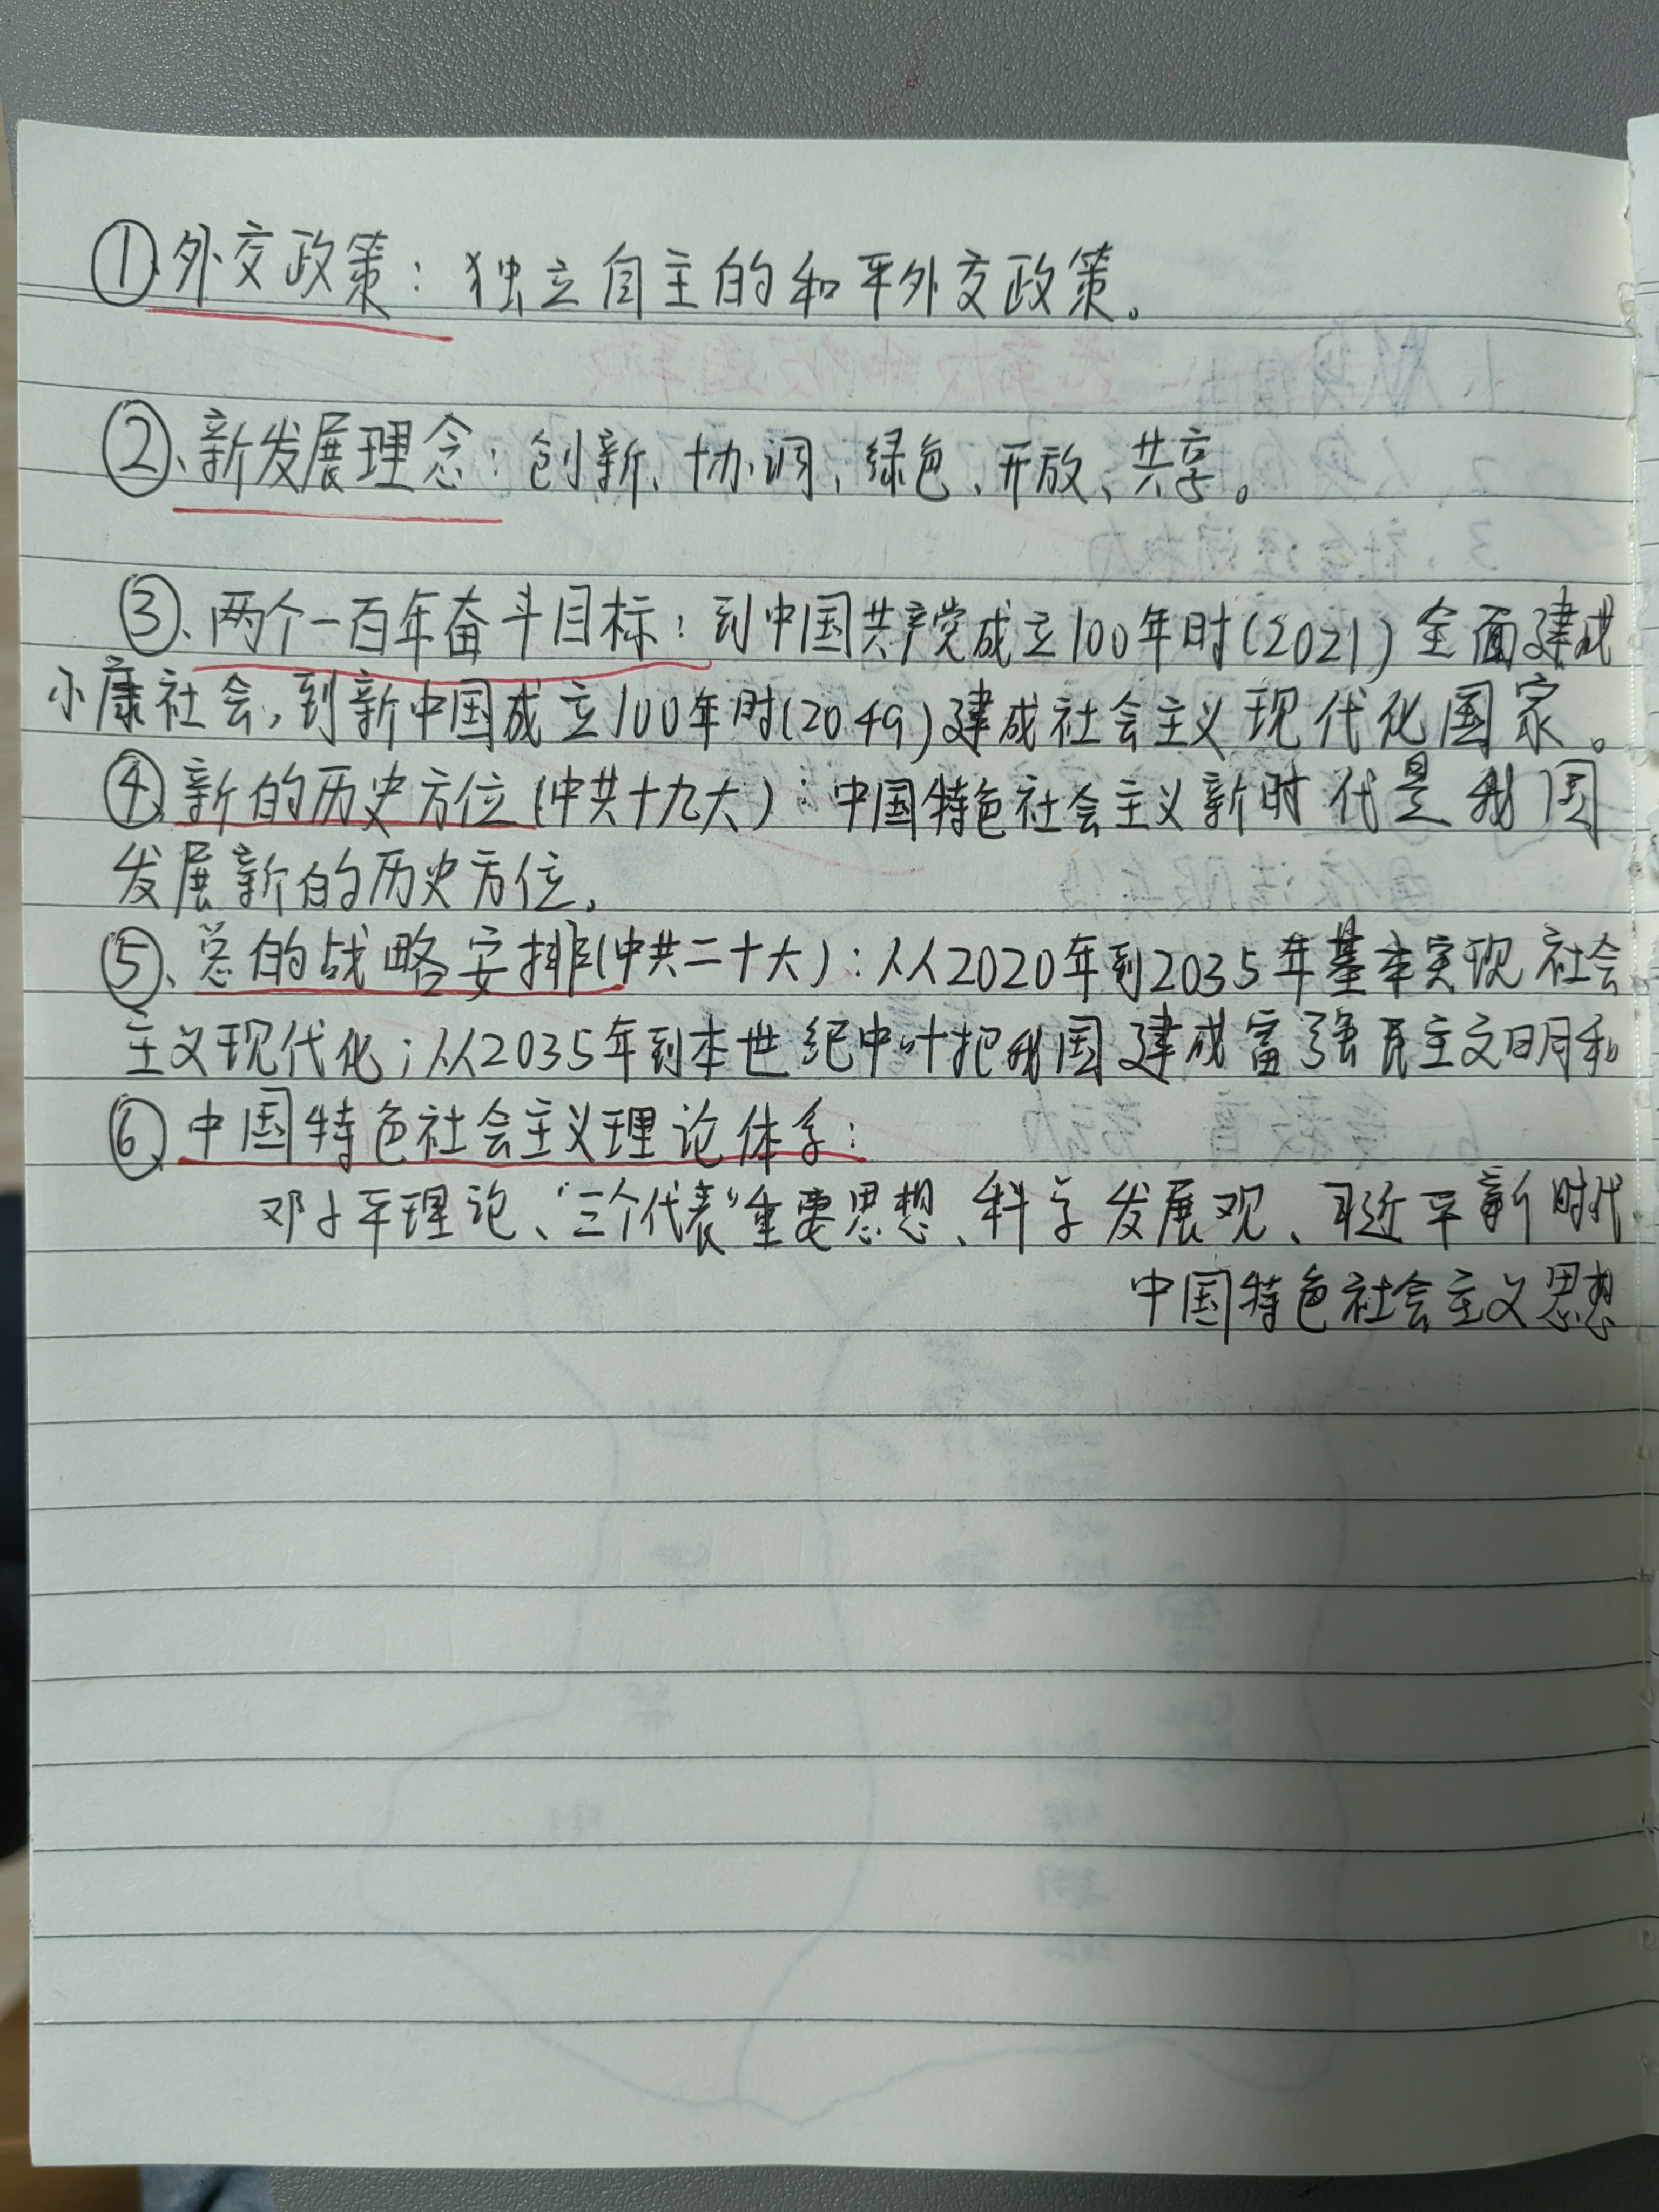 ①、外交政策：独立自主的和平外交政策。
②、新发展理念：创新、协调、绿色、开放、共享。
③、两个一百年奋斗目标：到中国共产党成立100年时(2021)全面建成
小康社会，到新中国成立100年时(2049)建成社会主义现代化国家。
④、新的历史方位(中共十九大)：中国特色社会主义新时代是我国
发展新的历史方位。
⑤、总的战略安排(中共二十大)：从2020年到2035年基本实现社会
主义现代化；从2035年到本世纪中叶把我国建成富强民主文明和
⑥、中国特色社会主义理论体系：
邓小平理论、“三个代表”重要思想、科学发展观、习近平新时代
中国特色社会主义思想